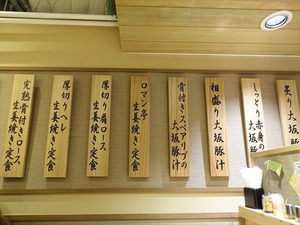 炙り大坂豚汁
しっとり赤身の
大坂豚汁
相盛り大坂豚汁
骨付きスペアリブの
大坂豚汁
ロマン亭
生姜焼き定食
厚切り肩ロース
生姜焼き定食
厚切りヘレ
生姜焼き定食
完熟骨付きロース
生姜焼き定食